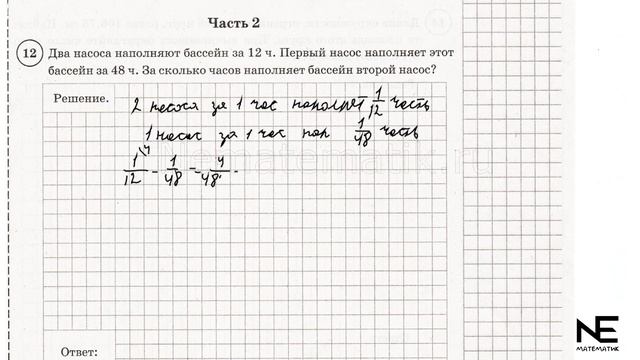 Часть 2
12 Два насоса наполняют бассейн за 12 ч. Первый насос наполняет этот
бассейн за 48 ч. За сколько часов наполняет бассейн второй насос?
Решение.
2 насоса за 1 час наполнят 1/12 часть
1 насос за 1 час нап 1/48 часть
1/12 \4 - 1/48 = 4/48 -
Ответ:
NE
МАТЕМАТИК